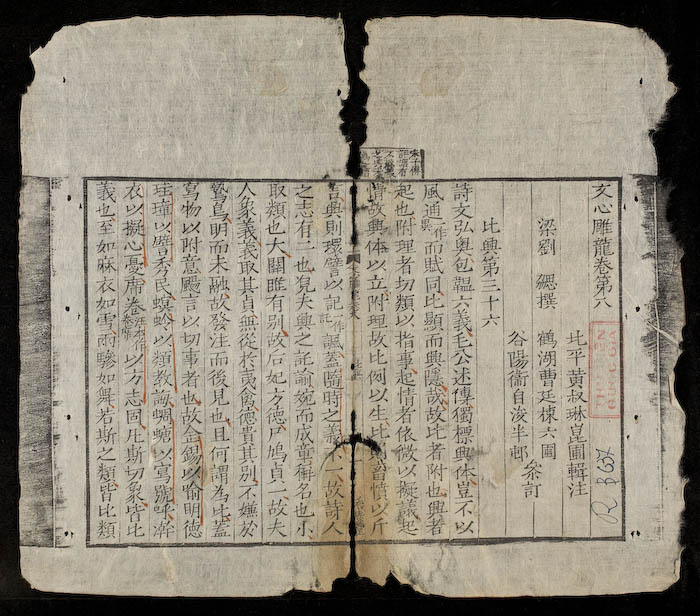 文心雕龍卷第八
北平黃叔琳崑圃輯注
梁劉勰撰 鶴湖曹廷棟六圃
參訂
谷陽衞自浚半邨
比興第三十六
詩文弘奧包韞六義毛公述傳獨標興体豈不以
風通一作異而賦同比顯而興隱哉故比者附也興者
起也附理者切類以指事起情者依微以擬議起
情故興体以立附理故比例以生比畜憤以斥
言興則環譬以記一作託諷蓋隨時之義不一故詩人
之志有二也觀夫興之託諭婉而成章稱名也小
取類也大關雎有別故后妃方德尸鳩貞一故夫
人象義義取其貞無從於夷禽德貴其別不嫌於
鷙鳥明而未融故發注而後見也且何謂為比蓋
寫物以附意颺言以切事者也故金錫以喻明德
珪璋以譬秀民螟蛉以類教誨蜩螗以寫號呼澣
衣以擬心憂席卷以方志固凡斯切象皆比
義也至如麻衣如雪兩驂如舞若斯之類皆比類